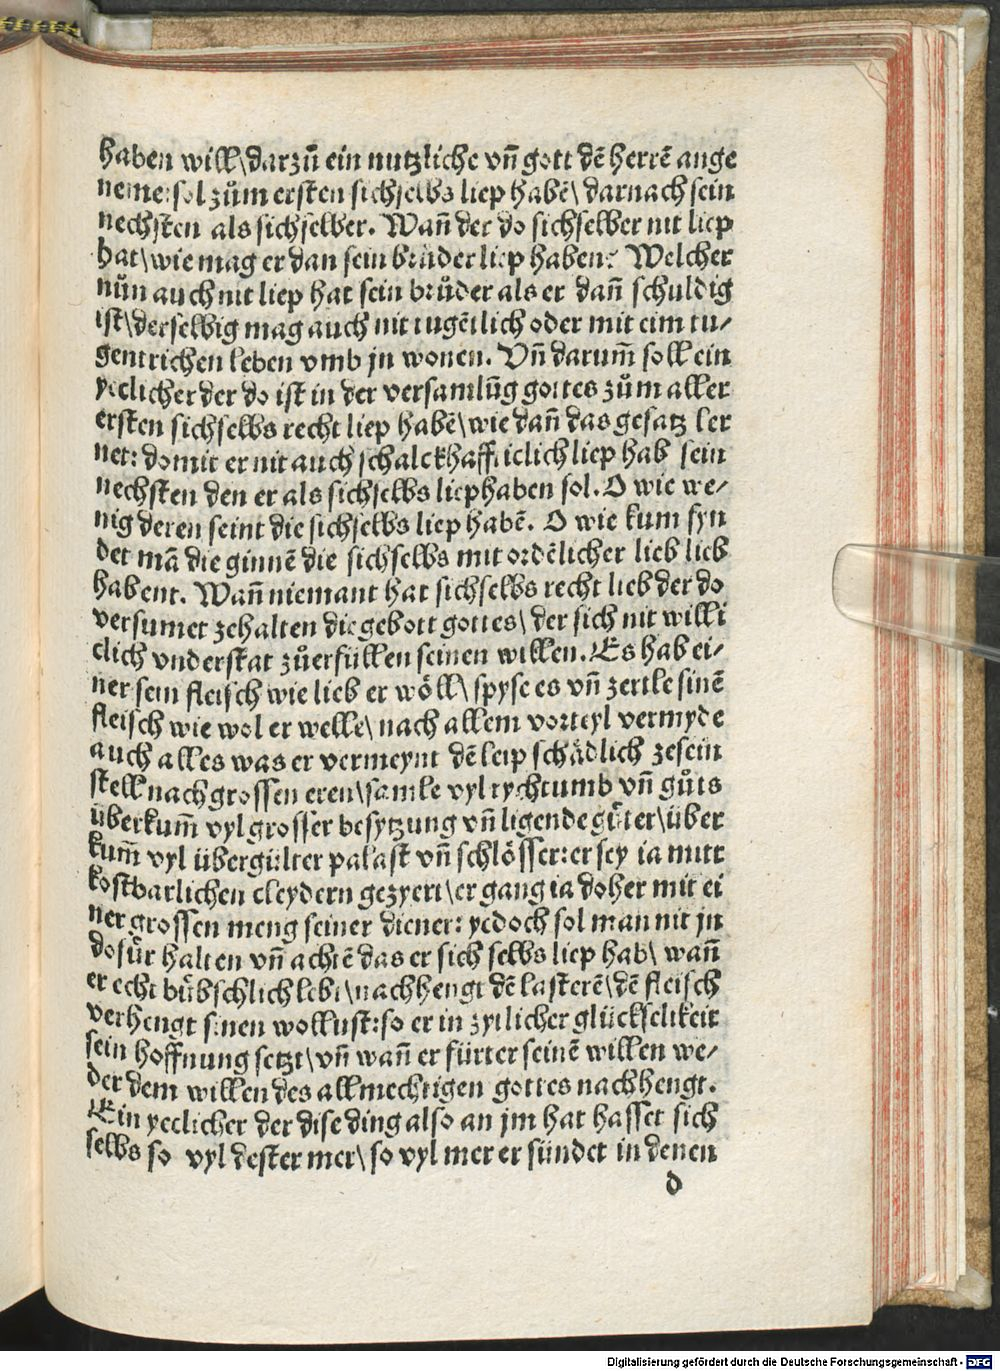 haben will\darzů ein nutzliche vñ gott dẽ herrẽ ange
neme: sol zům ersten sichselbs liep habẽ\ darnach sein
nechsten als sichselber. Wañ der do sichselber nit liep
hat\wie mag er dan sein brůder liep haben? Welcher
nůn auch nit liep hat sein brůder als er dañ schuldig
ist\derselbig mag auch nit tugẽtlich oder mit eim tu⸗
gentrichen leben vmb jn wonen. Vñ darum̃ soll ein
yeclicher der do ist in der versamlũg gottes zům aller
ersten sichselbs recht liep habẽ\wie dañ das gesatz ler
net: domit er nit auch schalckhaffticlich liep hab sein
nechsten den er als sichselbs liephaben sol. O wie we⸗
nig deren seint die sichselbs liep habẽ. O wie kum fyn
det mã die ginnẽ die sichselbs mit ordẽlicher lieb lieb
habent. Wañ niemant hat sichselbs recht lieb der do
versumet zehalten die gebott gottes\ der sich nit willi
clich vnderstat zůerfüllen seinen willen. Es hab ei⸗
ner sein fleisch wie lieb er wöll\ spyse es vñ zertle sinẽ
fleisch wie wol er welle\ nach allem vorteyl vermyde
auch alles was er vermeynt dẽ leip schädlich zesein
stell nach grossen eren\samle vyl rychtumb vñ gůts
überkum̃ vyl grosser besytzung vñ ligende gůter\über
kum̃ vyl übergülter palast vñ schlösser: er sey ia mitt
kostbarlichen cleydern gezyert\er gang ia doher mit ei
ner grossen meng seiner diener: yedoch sol man nit jn
dofür halten vñ achtẽ das er sich selbs liep hab\ wañ
er echt bůbschlich lebt\nachhengt dẽ lasterẽ\dẽ fleisch
verhengt sinen wollust: so er in zytlicher glückselikeit
sein hoffnung setzt\vñ wañ er fürter seinẽ willen we⸗
der dem willen des allmechtigen gottes nachhengt.
Ein yeclicher der dise ding also an jm hat hasset sich
selbs so vyl dester mer\ so vyl mer er sündet in denen
d
Digitalisierung gefördert durch die Deutsche Forschungsgemeinschaft - DFG